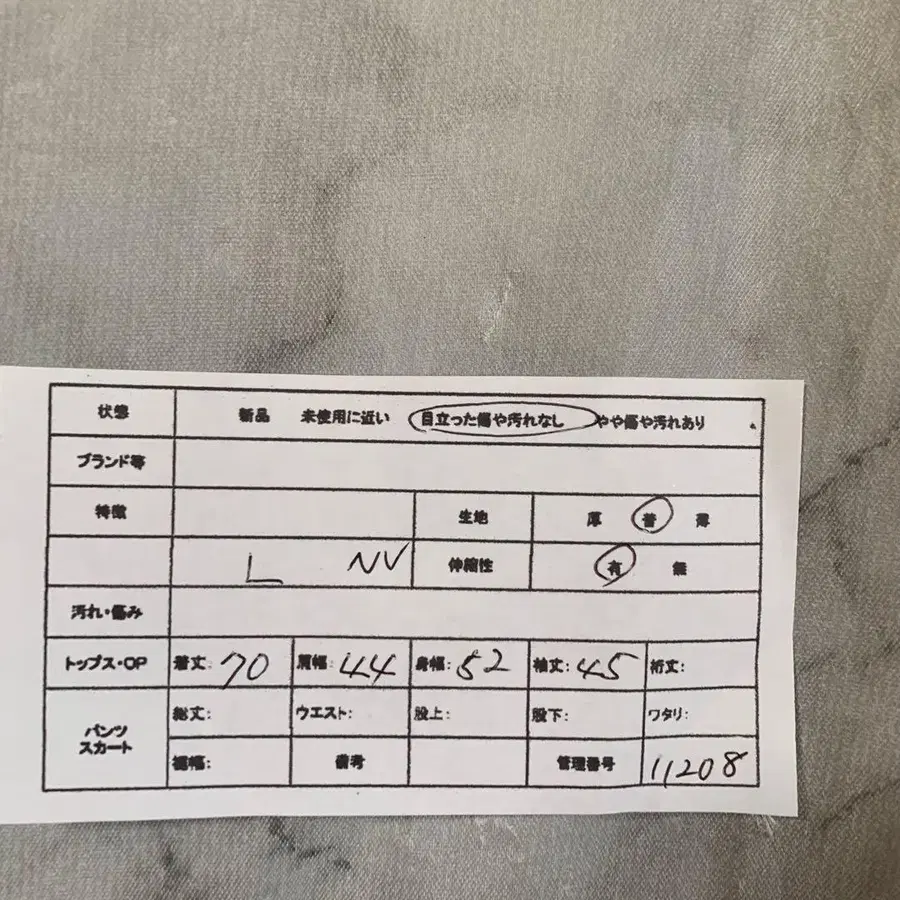 状態 新品 未使用に近い 目立った傷や汚れなし やや傷や汚れあり
ブランド等
特徴 生地 厚 普 薄
L NV 伸縮性 有 無
汚れ・傷み
トップス・OP 着丈: 70 肩幅: 44 身幅: 52 袖丈: 45 裄丈:
パンツ スカート 総丈: ウエスト: 股上: 股下: ワタリ:
裾幅: 備考 管理番号 11208